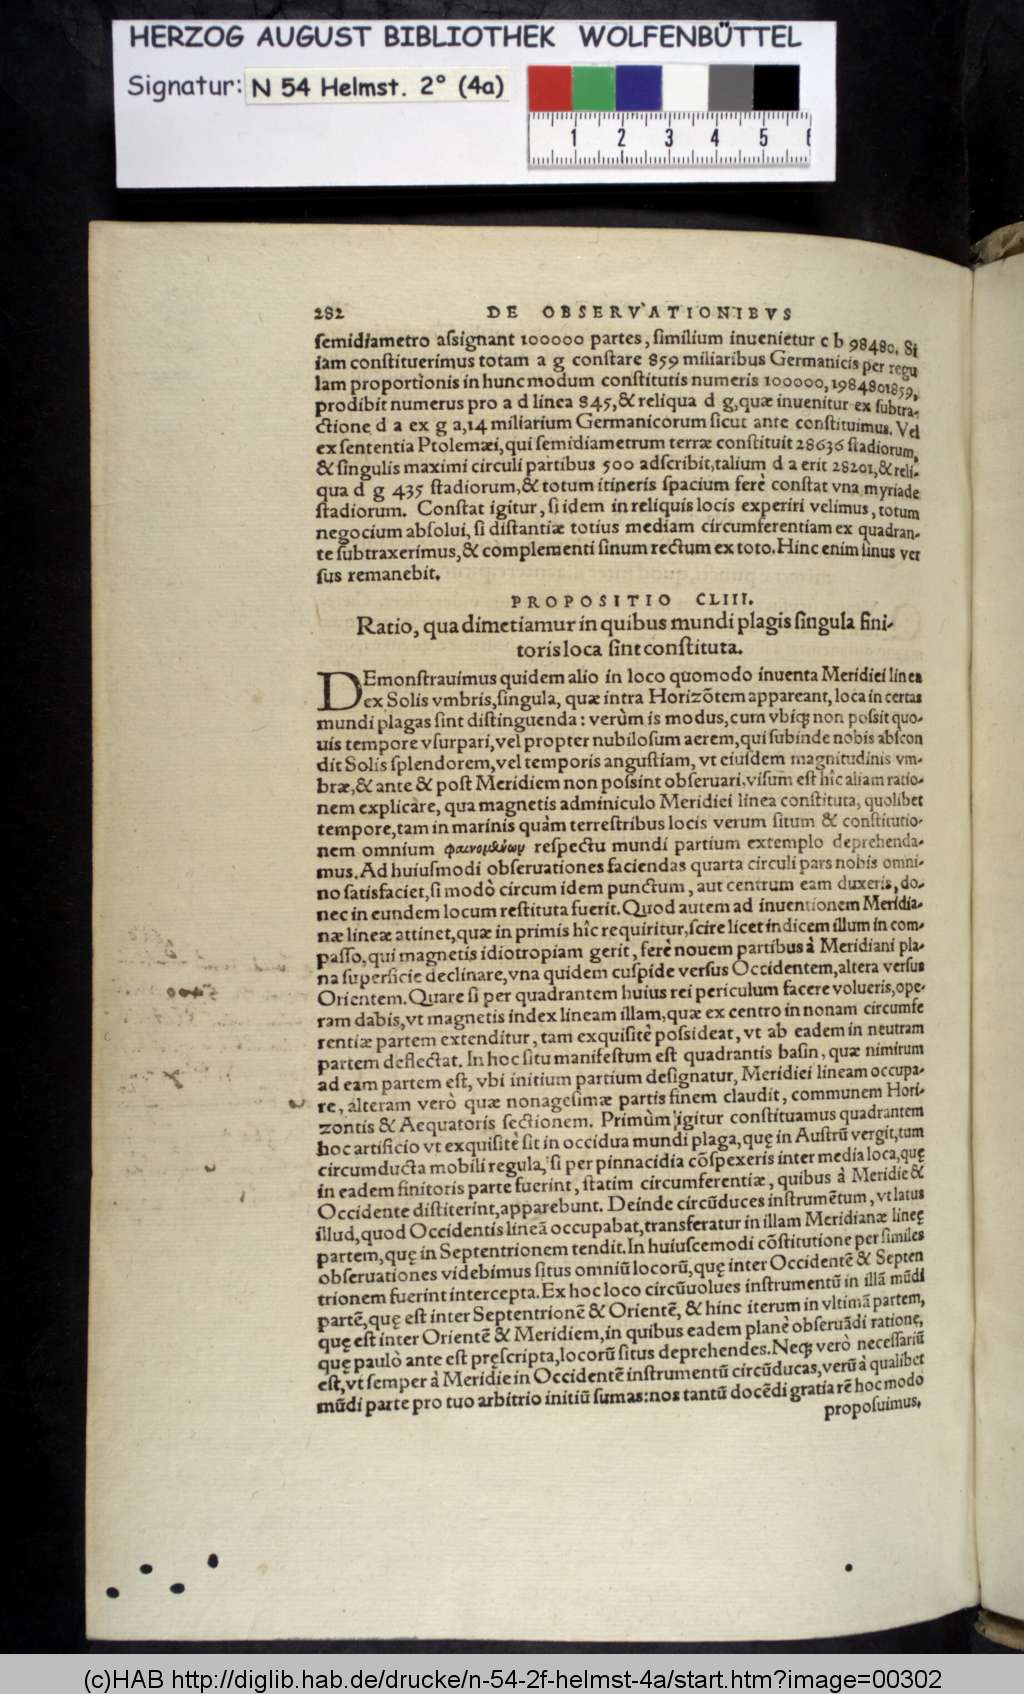 HERZOG AUGUST BIBLIOTHEK WOLFENBÜTTEL
Signatur: N 54 Helmst. 2° (4a)
1 2 3 4 5 6
282 DE OBSERVATIONIBVS
ſemidiametro aſsignant 100000 partes, ſimilium inuenietur c b 98480. Si
iam conſtituerimus totam a g conſtare 859 miliaribus Germanicis per regu
lam proportionis in hunc modum conſtitutis numeris 100000, 98480 859,
prodibit numerus pro a d linea 845, & reliqua d g, quæ inuenitur ex ſubtra-
ctione d a ex g a, 14 miliarium Germanicorum ſicut ante conſtituimus. Vel
ex ſententia Ptolemæi, qui ſemidiametrum terræ conſtituit 28636 ſtadiorum,
& ſingulis maximi circuli partibus 500 adſcribit, talium d a erit 28201, & reli-
qua d g 435 ſtadiorum, & totum itineris ſpacium ferè conſtat vna myriade
ſtadiorum. Conſtat igitur, ſi idem in reliquis locis experiri velimus, totum
negocium abſolui, ſi diſtantiæ totius mediam circumferentiam ex quadran-
te ſubtraxerimus, & complementi ſinum rectum ex toto. Hinc enim ſinus ver
ſus remanebit.
PROPOSITIO CLIII.
Ratio, qua dimetiamur in quibus mundi plagis ſingula fini-
toris loca ſint conſtituta.
DEmonſtrauimus quidem alio in loco quomodo inuenta Meridiei linea
ex Solis vmbris, ſingula, quæ intra Horizõtem appareant, loca in certas
mundi plagas ſint diſtinguenda: verùm is modus, cum vbiqꝫ non poſsit quo-
uis tempore vſurpari, vel propter nubiloſum aerem, qui ſubinde nobis abſcon
dit Solis ſplendorem, vel temporis anguſtiam, vt eiuſdem magnitudinis vm-
bræ, & ante & poſt Meridiem non poſsint obſeruari, viſum eſt hîc aliam ratio-
nem explicare, qua magnetis adminiculo Meridiei linea conſtituta, quolibet
tempore, tam in marinis quàm terreſtribus locis verum ſitum & conſtitutio-
nem omnium φαινομθύωμ reſpectu mundi partium extemplo deprehenda-
mus. Ad huiuſmodi obſeruationes faciendas quarta circuli pars nobis omni-
no ſatisfaciet, ſi modò circum idem punctum, aut centrum eam duxeris, do-
nec in eundem locum reſtituta fuerit. Quod autem ad inuentionem Meridia-
næ lineæ attinet, quæ in primis hîc requiritur, ſcire licet indicem illum in com-
paſſo, qui magnetis idiotropiam gerit, ferè nouem partibus à Meridiani pla-
na ſuperficie declinare, vna quidem cuſpide verſus Occidentem, altera verſus
Orientem. Quare ſi per quadrantem huius rei periculum facere volueris, ope-
ram dabis, vt magnetis index lineam illam, quæ ex centro in nonam circumfe
rentiæ partem extenditur, tam exquiſitè poſsideat, vt ab eadem in neutram
partem deflectat. In hoc ſitu manifeſtum eſt quadrantis baſin, quæ nimirum
ad eam partem eſt, vbi initium partium deſignatur, Meridiei lineam occupa-
re, alteram verò quæ nonageſimæ partis finem claudit, communem Hori-
zontis & Aequatoris ſectionem. Primùm igitur conſtituamus quadrantem
hoc artificio vt exquiſitè ſit in occidua mundi plaga, quę in Auſtrũ vergit, tum
circumducta mobili regula, ſi per pinnacidia cõſpexeris inter media loca, quę
in eadem finitoris parte fuerint, ſtatim circumferentiæ, quibus à Meridie &
Occidente diſtiterint, apparebunt. Deinde circũduces inſtrumẽtum, vt latus
illud, quod Occidentis lineã occupabat, transferatur in illam Meridianæ lineę
partem, quę in Septentrionem tendit. In huiuſcemodi cõſtitutione per ſimiles
obſeruationes videbimus ſitus omniũ locorũ, quę inter Occidentẽ & Septen
trionem fuerint intercepta. Ex hoc loco circũuolues inſtrumentũ in illã mũdi
partẽ, quę eſt inter Septentrionẽ & Orientẽ, & hinc iterum in vltimã partem,
quę eſt inter Orientẽ & Meridiem, in quibus eadem planè obſeruãdi ratione,
quę paulò ante eſt pręſcripta, locorũ ſitus deprehendes. Neqꝫ verò neceſſariũ
eſt, vt ſemper à Meridie in Occidentẽ inſtrumentũ circũducas, verũ à qualibet
mũdi parte pro tuo arbitrio initiũ ſumas: nos tantũ docẽdi gratia rẽ hoc modo
propoſuimus,
(c)HAB http://diglib.hab.de/drucke/n-54-2f-helmst-4a/start.htm?image=00302